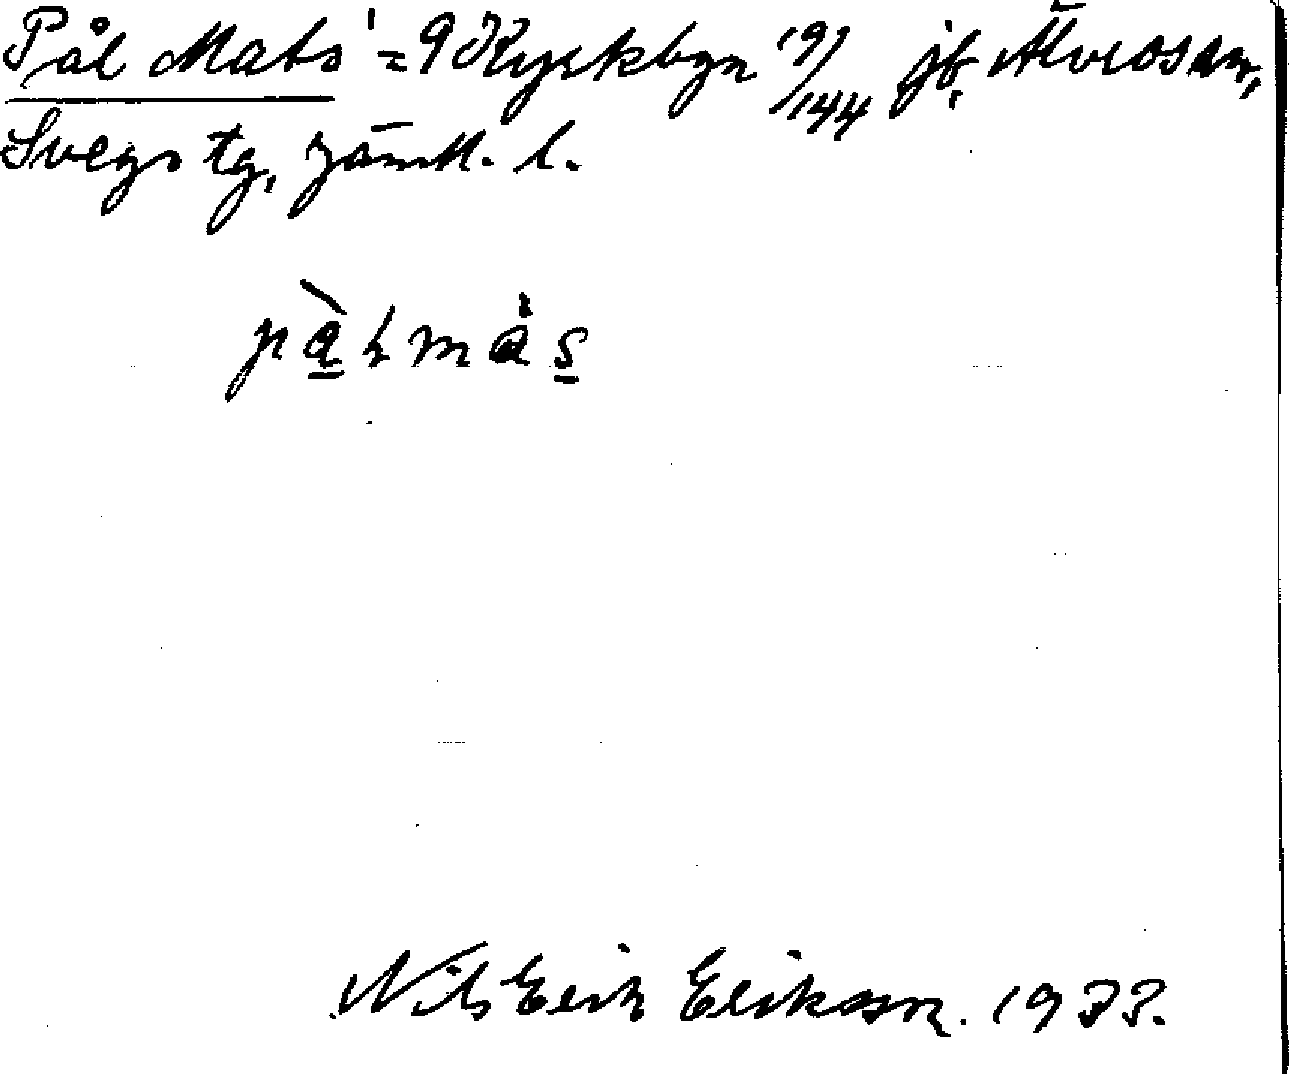 Pål Mats' = 9 Kyrkbyn 19/144 jb, Älvros sn,
Svegs tg, Jämtl. l.
pàlmás
Nils Erik Erikson. 1933.